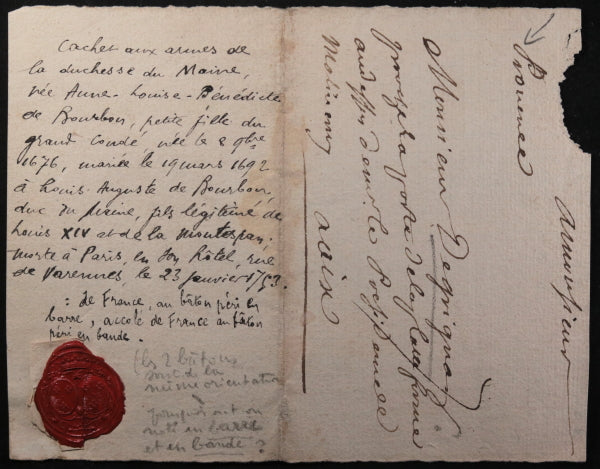 Cachet aux armes de
la duchesse du Maine,
née Anne-Louise-Bénédicte
de Bourbon, petite fille du
grand Condé, née le 8 9bre
1676, mariée le 19 mars 1692
à Louis-Auguste de Bourbon,
duc du Maine, fils légitimé de
Louis XIV et de la Montespan;
morte à Paris, en son hôtel, rue
de Varennes, le 23 janvier 1753.
: de France, au bâton péri en
barre, accolé de France au bâton
péri en bande.
(les 2 bâtons
sont de la
même orientation
Pourquoi a-t-on
noté en barre
et en bande ?
Provence
A monsieur
Monsieur
proche la porte de la plateforme
Monsieur
a aix